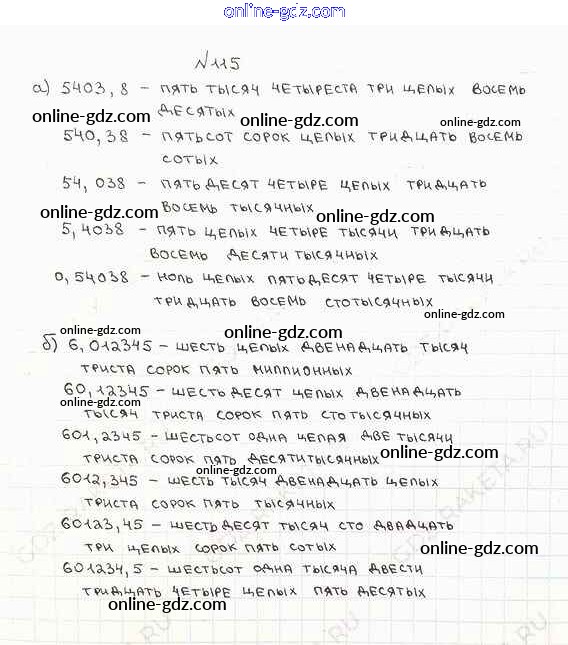 online-gdz.com
N115
а) 5403,8 – ПЯТЬ ТЫСЯЧ ЧЕТЫРЕСТА ТРИ ЦЕЛЫХ ВОСЕМЬ
ДЕСЯТЫХ
online-gdz.com online-gdz.com
540,38 – ПЯТЬСОТ СОРОК ЦЕЛЫХ ТРИДЦАТЬ ВОСЕМЬ
СОТЫХ
54,038 – ПЯТЬДЕСЯТ ЧЕТЫРЕ ЦЕЛЫХ ТРИДЦАТЬ
ВОСЕМЬ ТЫСЯЧНЫХ
online-gdz.com online-gdz.com
5,4038 – ПЯТЬ ЦЕЛЫХ ЧЕТЫРЕ ТЫСЯЧИ ТРИДЦАТЬ
ВОСЕМЬ ДЕСЯТИТЫСЯЧНЫХ
0,54038 – НОЛЬ ЦЕЛЫХ ПЯТЬДЕСЯТ ЧЕТЫРЕ ТЫСЯЧИ
ТРИДЦАТЬ ВОСЕМЬ СТОТЫСЯЧНЫХ
online-gdz.com online-gdz.com
б) 6,012345 – ШЕСТЬ ЦЕЛЫХ ДВЕНАДЦАТЬ ТЫСЯЧ
ТРИСТА СОРОК ПЯТЬ МИЛЛИОННЫХ
60,12345 – ШЕСТЬДЕСЯТ ЦЕЛЫХ ДВЕНАДЦАТЬ
online-gdz.com
ТЫСЯЧ ТРИСТА СОРОК ПЯТЬ СТОТЫСЯЧНЫХ
601,2345 – ШЕСТЬСОТ ОДНА ЦЕЛАЯ ДВЕ ТЫСЯЧИ
ТРИСТА СОРОК ПЯТЬ ДЕСЯТИТЫСЯЧНЫХ
online-gdz.com
6012,345 – ШЕСТЬ ТЫСЯЧ ДВЕНАДЦАТЬ ЦЕЛЫХ
ТРИСТА СОРОК ПЯТЬ ТЫСЯЧНЫХ
60123,45 – ШЕСТЬДЕСЯТ ТЫСЯЧ СТО ДВАДЦАТЬ
ТРИ ЦЕЛЫХ СОРОК ПЯТЬ СОТЫХ
online-gdz.com
601234,5 – ШЕСТЬСОТ ОДНА ТЫСЯЧА ДВЕСТИ
ТРИДЦАТЬ ЧЕТЫРЕ ЦЕЛЫХ ПЯТЬ ДЕСЯТЫХ
online-gdz.com